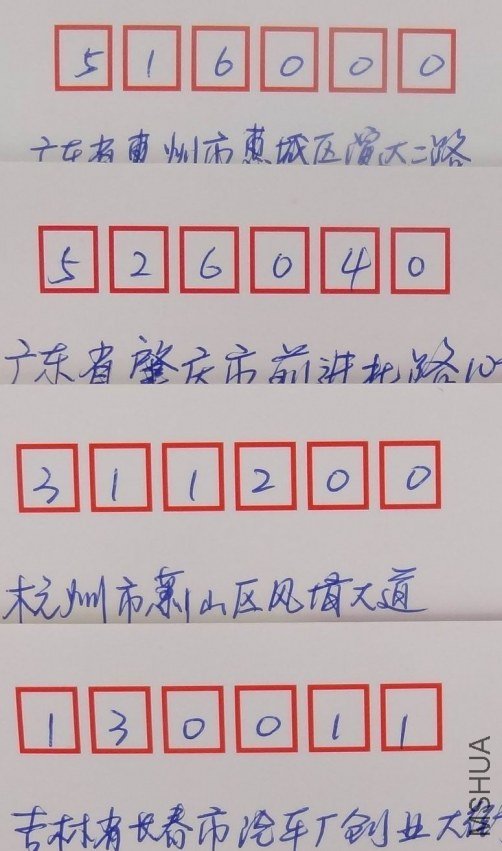 516000
广东省惠州市惠城区演大二路
526040
广东省肇庆市前进北路10
311200
杭州市萧山区风情大道
130011
吉林省长春市汽车厂创业大街
MSHUA